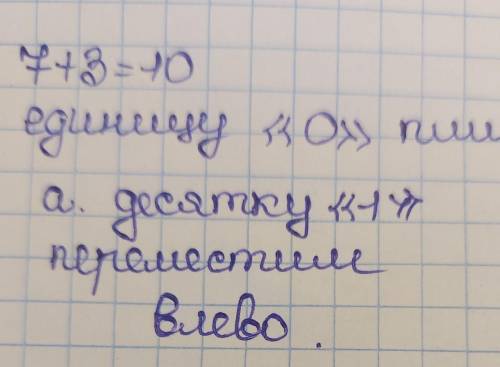 7+3=10
единицу «0»
а. десятку «1»
переместим
влево.